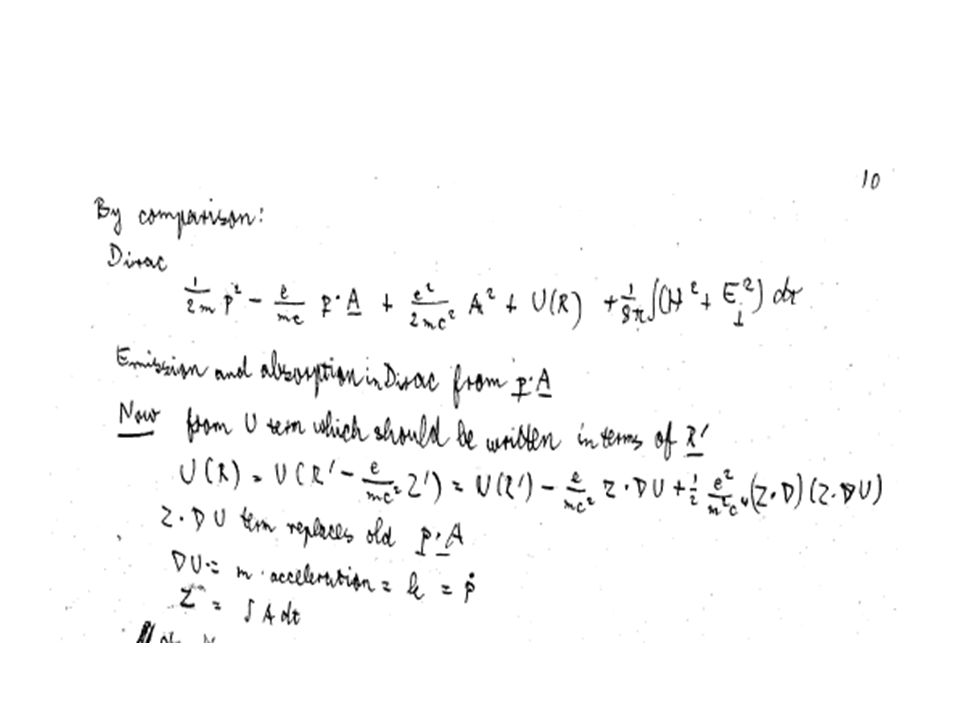 10
By comparison:
Dirac
1/2m p² − e/mc p·A + e²/2mc² A² + U(R) + 1/8π ∫(H² + E⊥²) dτ
Emission and absorption in Dirac from p·A
Now from U term which should be written in terms of R′
U(R) = U(R′ − e/mc² Z′) = U(R′) − e/mc² Z·∇U + 1/2 e²/m²c⁴ (Z·∇)(Z·∇U)
Z·∇U term replaces old p·A
∇U = m·acceleration = = ṗ
Z = ∫A dt